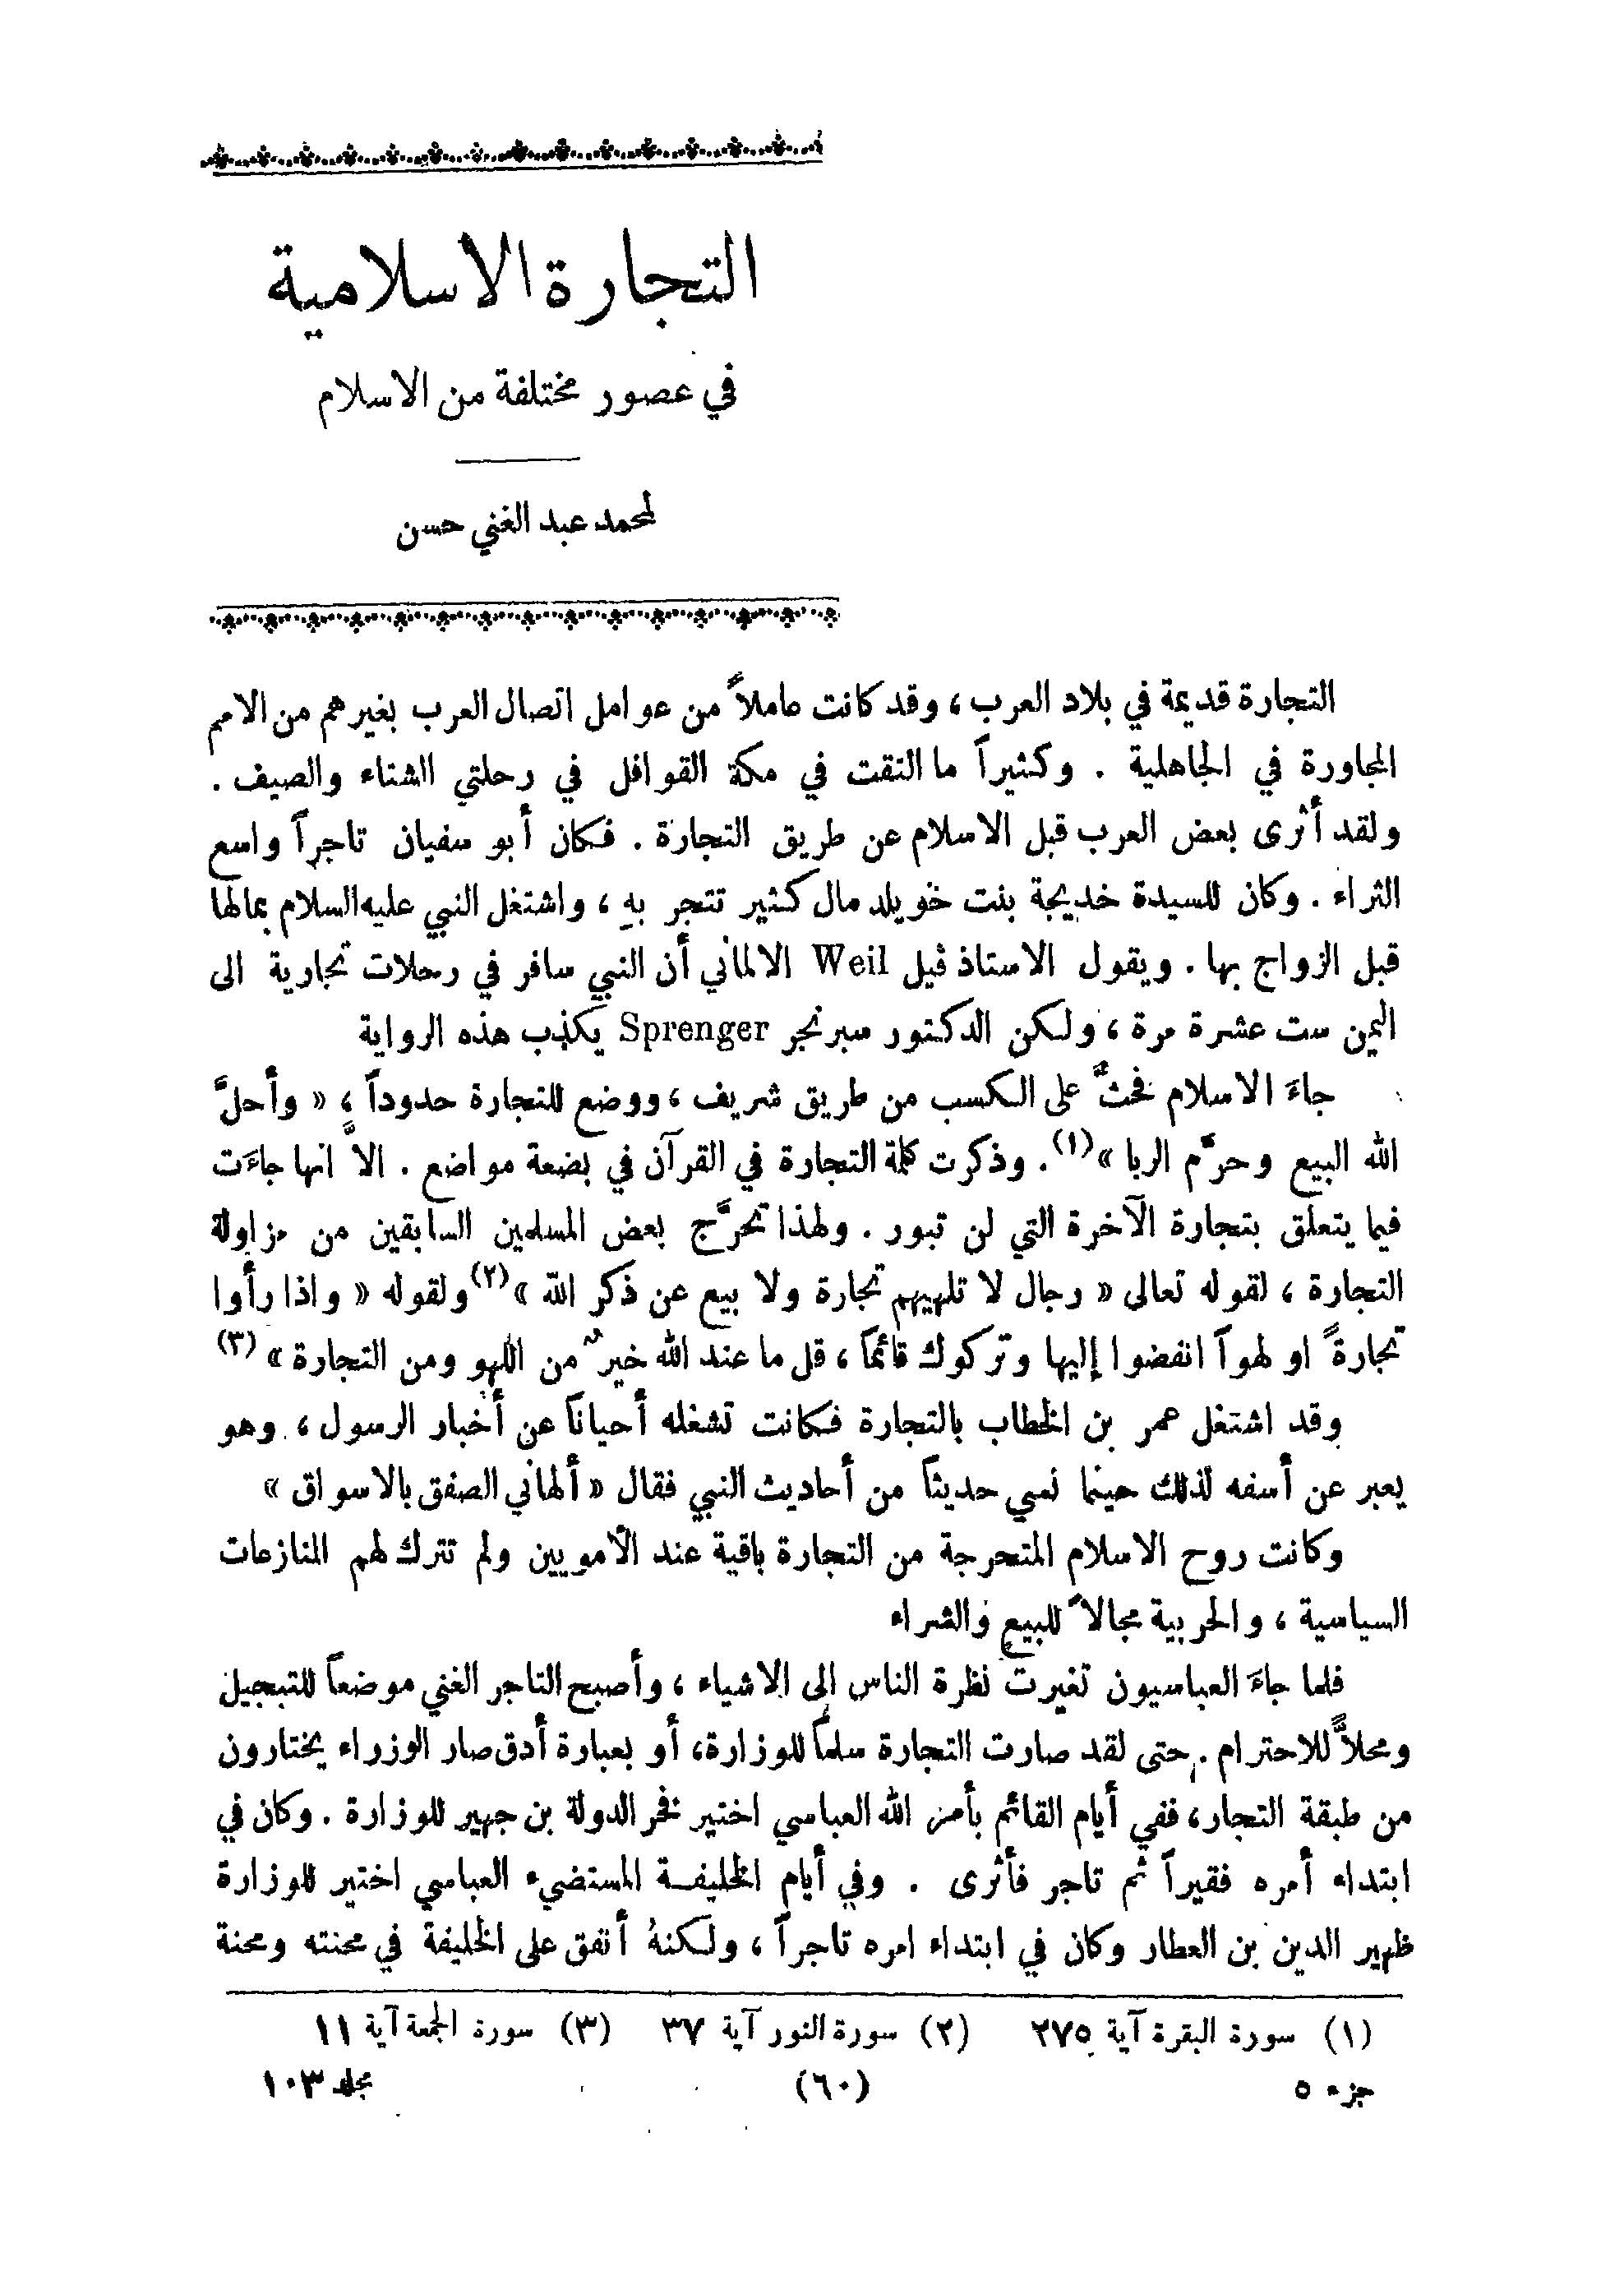 التجارة الاسلامية
في عصور مختلفة من الاسلام
لمحمد عبد الغني حسن
التجارة قديمة في بلاد العرب ، وقد كانت عاملاً من عوامل اتصال العرب بغيرهم من الامم
المجاورة في الجاهلية . وكثيراً ما التقت في مكة القوافل في رحلتي الشتاء والصيف .
ولقد أثرى بعض العرب قبل الاسلام عن طريق التجارة . فكان أبو سفيان تاجراً واسع
الثراء . وكان للسيدة خديجة بنت خويلد مال كثير تتجر بهِ ، واشتغل النبي عليه السلام بمالها
قبل الزواج بها . ويقول الاستاذ ڤيل Weil الالماني أن النبي سافر في رحلات تجارية الى
اليمن ست عشرة مرة ، ولكن الدكتور سبرنجر Sprenger يكذب هذه الرواية
جاءَ الاسلام فحثَّ على الكسب من طريق شريف ، ووضع للتجارة حدوداً ، « وأحلَّ
الله البيع وحرَّم الربا »(١). وذكرت كلمة التجارة في القرآن في بضعة مواضع . الاَّ انها جاءَت
فيما يتعلق بتجارة الآخرة التي لن تبور . ولهذا تحرَّج بعض المسلمين السابقين من مزاولة
التجارة ، لقوله تعالى « رجال لا تلهيهم تجارة ولا بيع عن ذكر الله »(٢) ولقوله « واذا رأوا
تجارةً او لهواً انفضوا إليها وتركوك قائماً ، قل ما عند الله خيرٌ من اللهو ومن التجارة »(٣)
وقد اشتغل عمر بن الخطاب بالتجارة فكانت تشغله أحياناً عن أخبار الرسول ، وهو
يعبر عن أسفه لذلك حينما نسي حديثاً من أحاديث النبي فقال « ألهاني الصفق بالاسواق »
وكانت روح الاسلام المتحرجة من التجارة باقية عند الأمويين ولم تترك لهم المنازعات
السياسية ، والحربية مجالاً للبيع والشراء
فلما جاءَ العباسيون تغيرت نظرة الناس إلى الاشياء ، وأصبح التاجر الغني موضعاً للتبجيل
ومحلاًّ للاحترام . حتى لقد صارت التجارة سلماً للوزارة، أو بعبارة أدق صار الوزراء يختارون
من طبقة التجار، ففي أيام القائم بأمر الله العباسي اختير فخر الدولة بن جهير للوزارة . وكان في
ابتداء أمره فقيراً ثم تاجر فأثرى . وفي أيام الخليفة المستضيء العباسي اختير للوزارة
ظهير الدين بن العطار وكان في ابتداء امره تاجراً ، ولكنهُ أنفق على الخليفة في محنته ومحنة
(١) سورة البقرة آية ٢٧٥ (٢) سورة النور آية ٣٧ (٣) سورة الجمعة آية ١١
جزء ٥ (٦٠) مجلد ١٠٣